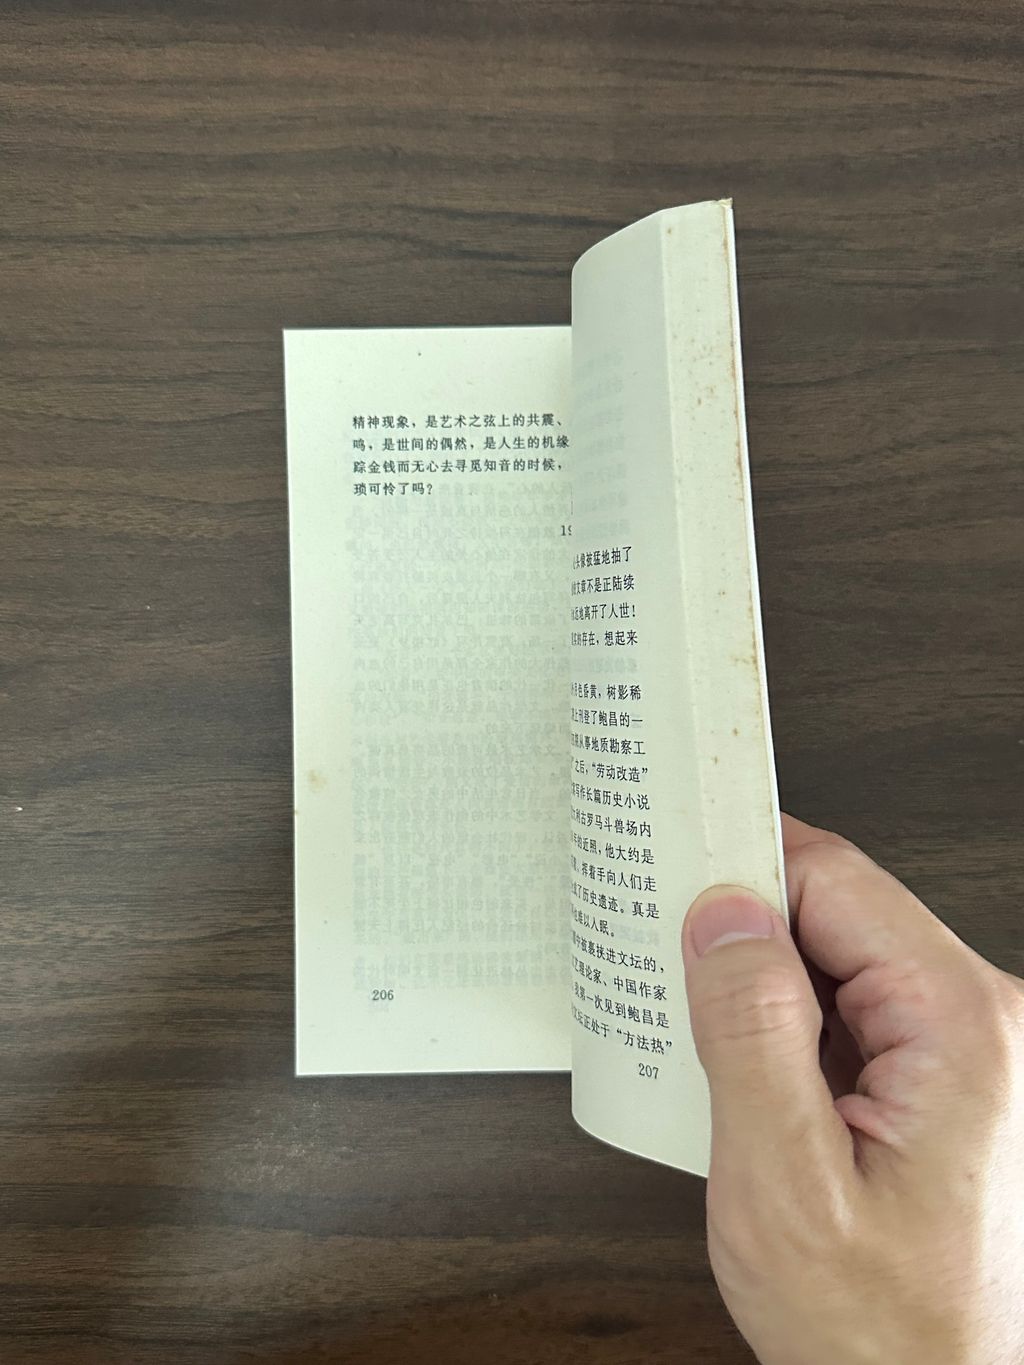 精神现象，是艺术之弦上的共震、
鸣，是世间的偶然，是人生的机缘
踪金钱而无心去寻觅知音的时候，
琐可怜了吗？
19
206
头像被猛地抽了
文章不是正陆续
远地离开了人世！
的存在，想起来
月色昏黄，树影稀
上刊登了鲍昌的一
从事地质勘察工
”之后，“劳动改造”
写作长篇历史小说
利古罗马斗兽场内
年的近照，他大约是
挥着手向人们走
了历史遗迹。真是
也难以入眠。
中被裹挟进文坛的，
艺理论家、中国作家
我第一次见到鲍昌是
坛正处于“方法热”
207